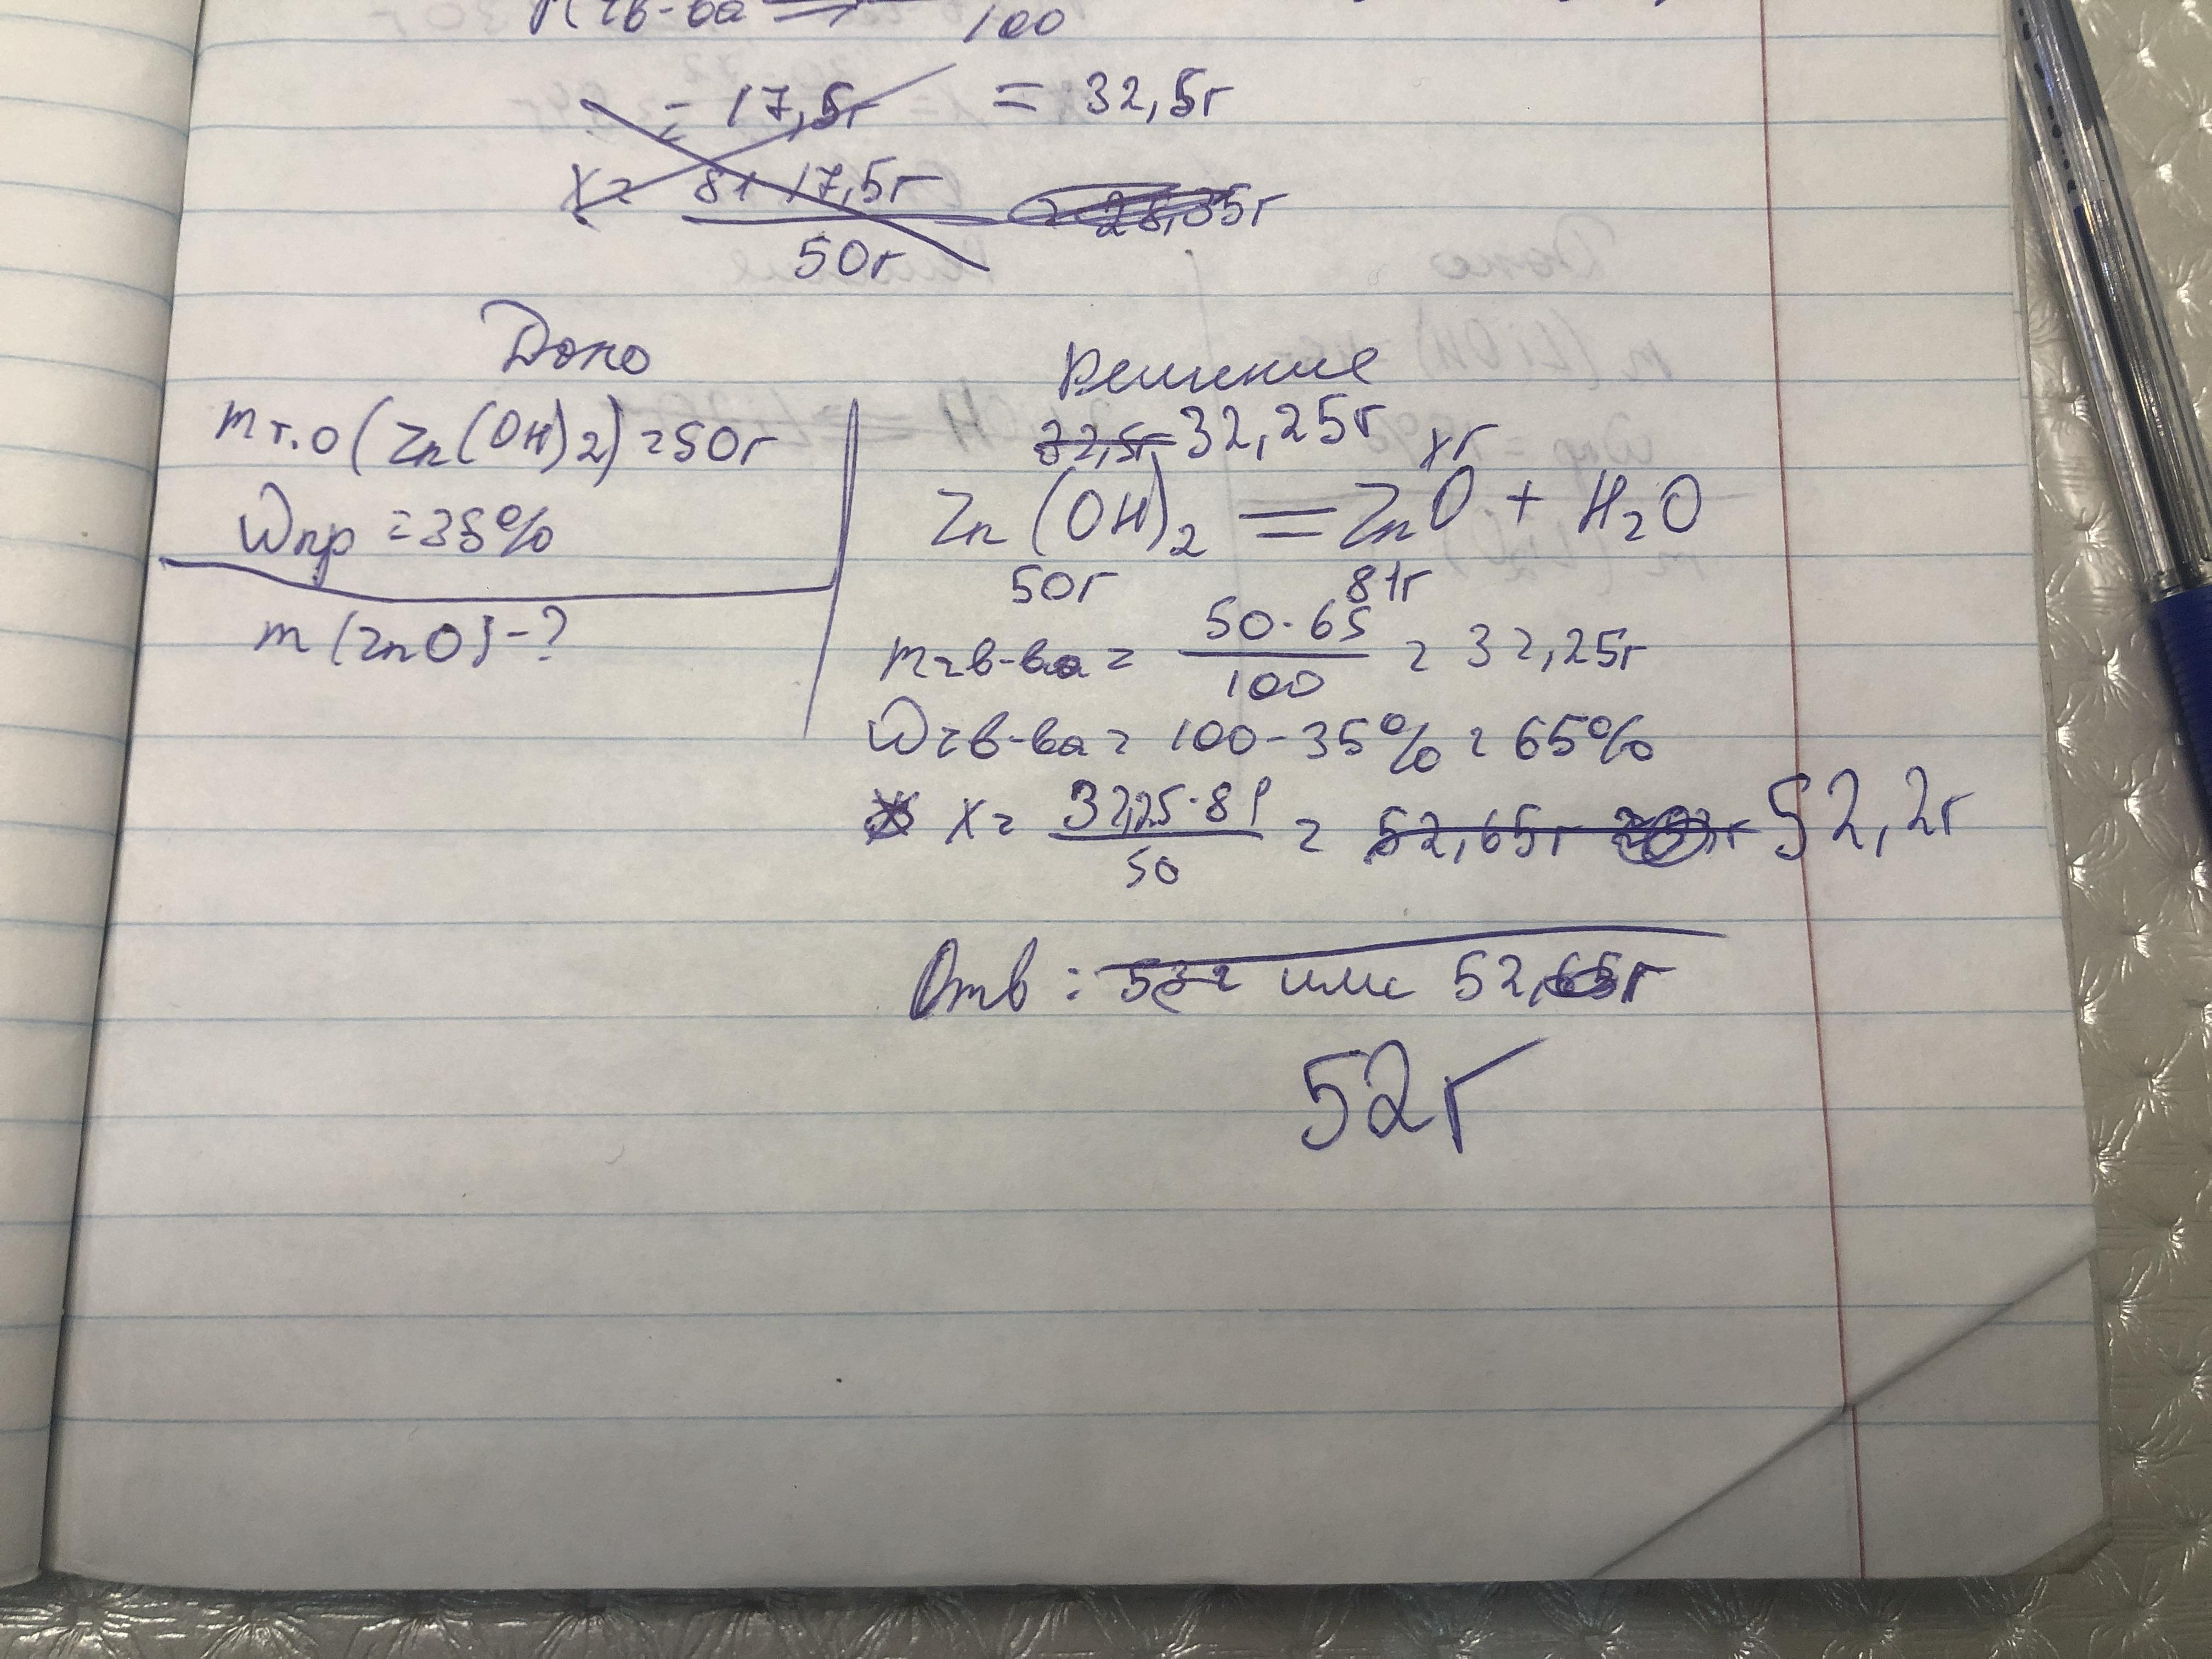 100
= 17,5г = 32,5г
x = 81 17,5г
50г
Дано
mт.о (Zn(OH)2) = 50г
Wпр = 35%
m (ZnO) - ?
Решение
32,25г xг
Zn(OH)2 = ZnO + H2O
50г 81г
mчв-ва = 50·65 / 100 = 32,25г
Wчв-ва = 100 - 35% = 65%
x = 32,25·81 / 50 = 52,65г 52,2г
Отв: или 52,65г
52г